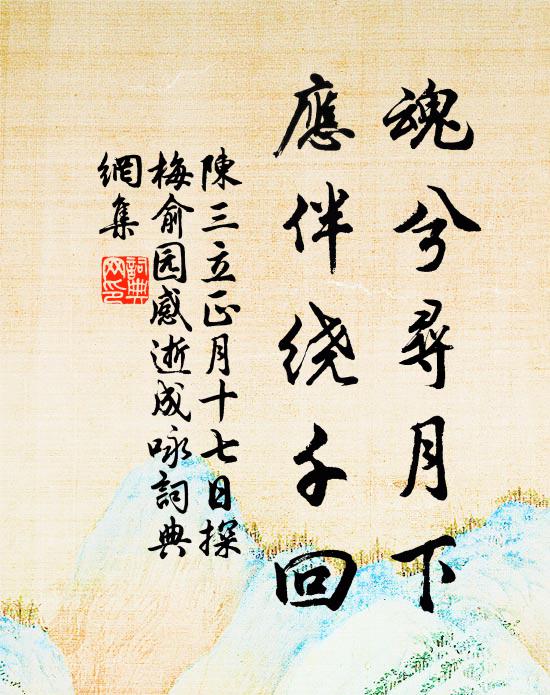 魂兮尋月下
應伴绕千回
陳三立正月十七日探
梅俞园感逝成咏詞典
網集
詞典
网印